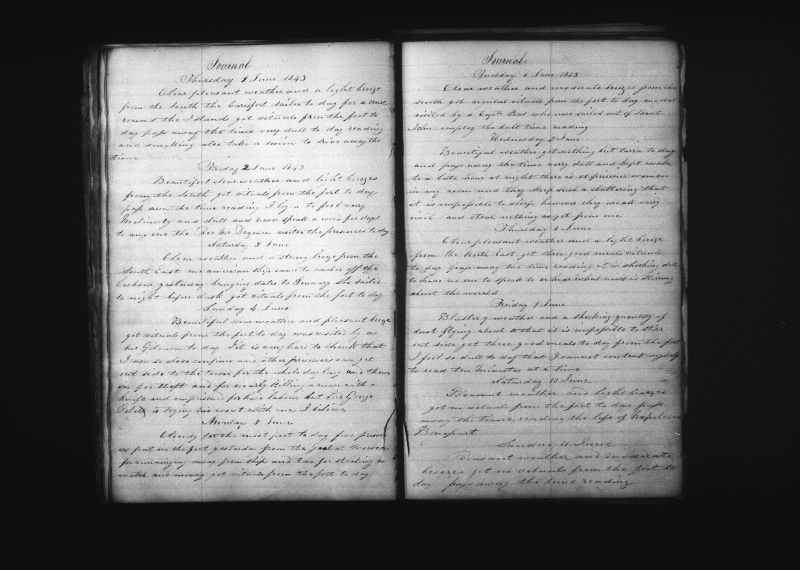 Journal
Thursday 1 June 1843
Clear pleasant weather and a light breeze
from the South the Carisfort sailed to day for a cruse
round the Islands got vituals from the fort to
day pass away the time very dull to day reading
and smoking also take a swim to drive away the
time
Friday 2 June 1843
Beautiful clear weather and light breezes
from the South got vituals from the fort to day
pass away the time reading I begin to feel very
Melancoly and dull and never speak a word for days
to any one the Rev Mr visited the prisoners to day
Saturday 3 June
Clear weather and a strong breeze from the
South East an american ship came to anchor off the
harbour yesterday bringing dates to January she sailed
to night before dusk got vituals from the fort to day
Sunday 4 June
Beautiful clear weather and pleasant breeze
got vituals from the fort to day was visited by a
Mr to day It is very hard to think that
I am so close confined and other prisoners can get
out side to the town for the whole day long and them
in for theft and for nearly killing a man with a
knife and imprisoned for hard labour but Sir George
is trying his worst with me I believe
Monday 5 June
Cloudy for the most part to day five prisoners
was put in the fort yesterday from the
for running away from ship and two for stealing a
watch and money got vituals from the fort to day
Journal
Tuesday 6 June 1843
Clear weather and moderate breeze from the
south got vituals from the fort to day and was
visited by a Captn who was sailed out of Saint
Johns employ the dull time reading
Wednesday 7 June
Beautiful weather got nothing but twice to day
and pass away the time very dull and kept awake
to a late hour at night there is 18 prisoner women
in my room and they keep such a chattering that
it is impossible to sleep however they are all very
civil and steal nothing as yet from me
Thursday 8 June
Clear pleasant weather and a light breeze
from the North East got three good meals vituals
to day pass away the time reading it is shocking dull
to have no one to speak to or hear what news is stirring
about the world
Friday 9 June
Blustery weather and a shocking quantity of
dust flying about so that it is impossible to stir
out side got three good meals to day from the fort
I feel so dull to day that I cannot content myself
to read ten minutes at a time
Saturday 10 June
Pleasant weather and light breezes
got no vituals from the fort to day pass
away the time reading the life of Napoleon
Bonapart
Sunday 11 June
Pleasant weather and moderate
breezes got no vituals from the fort to
day pass away the time reading